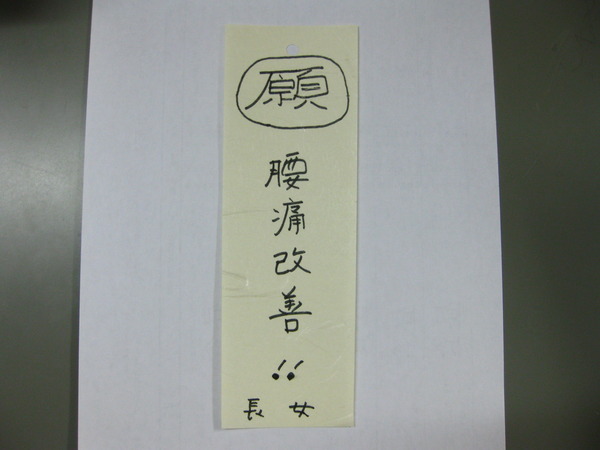 願
腰痛改善!!
長女